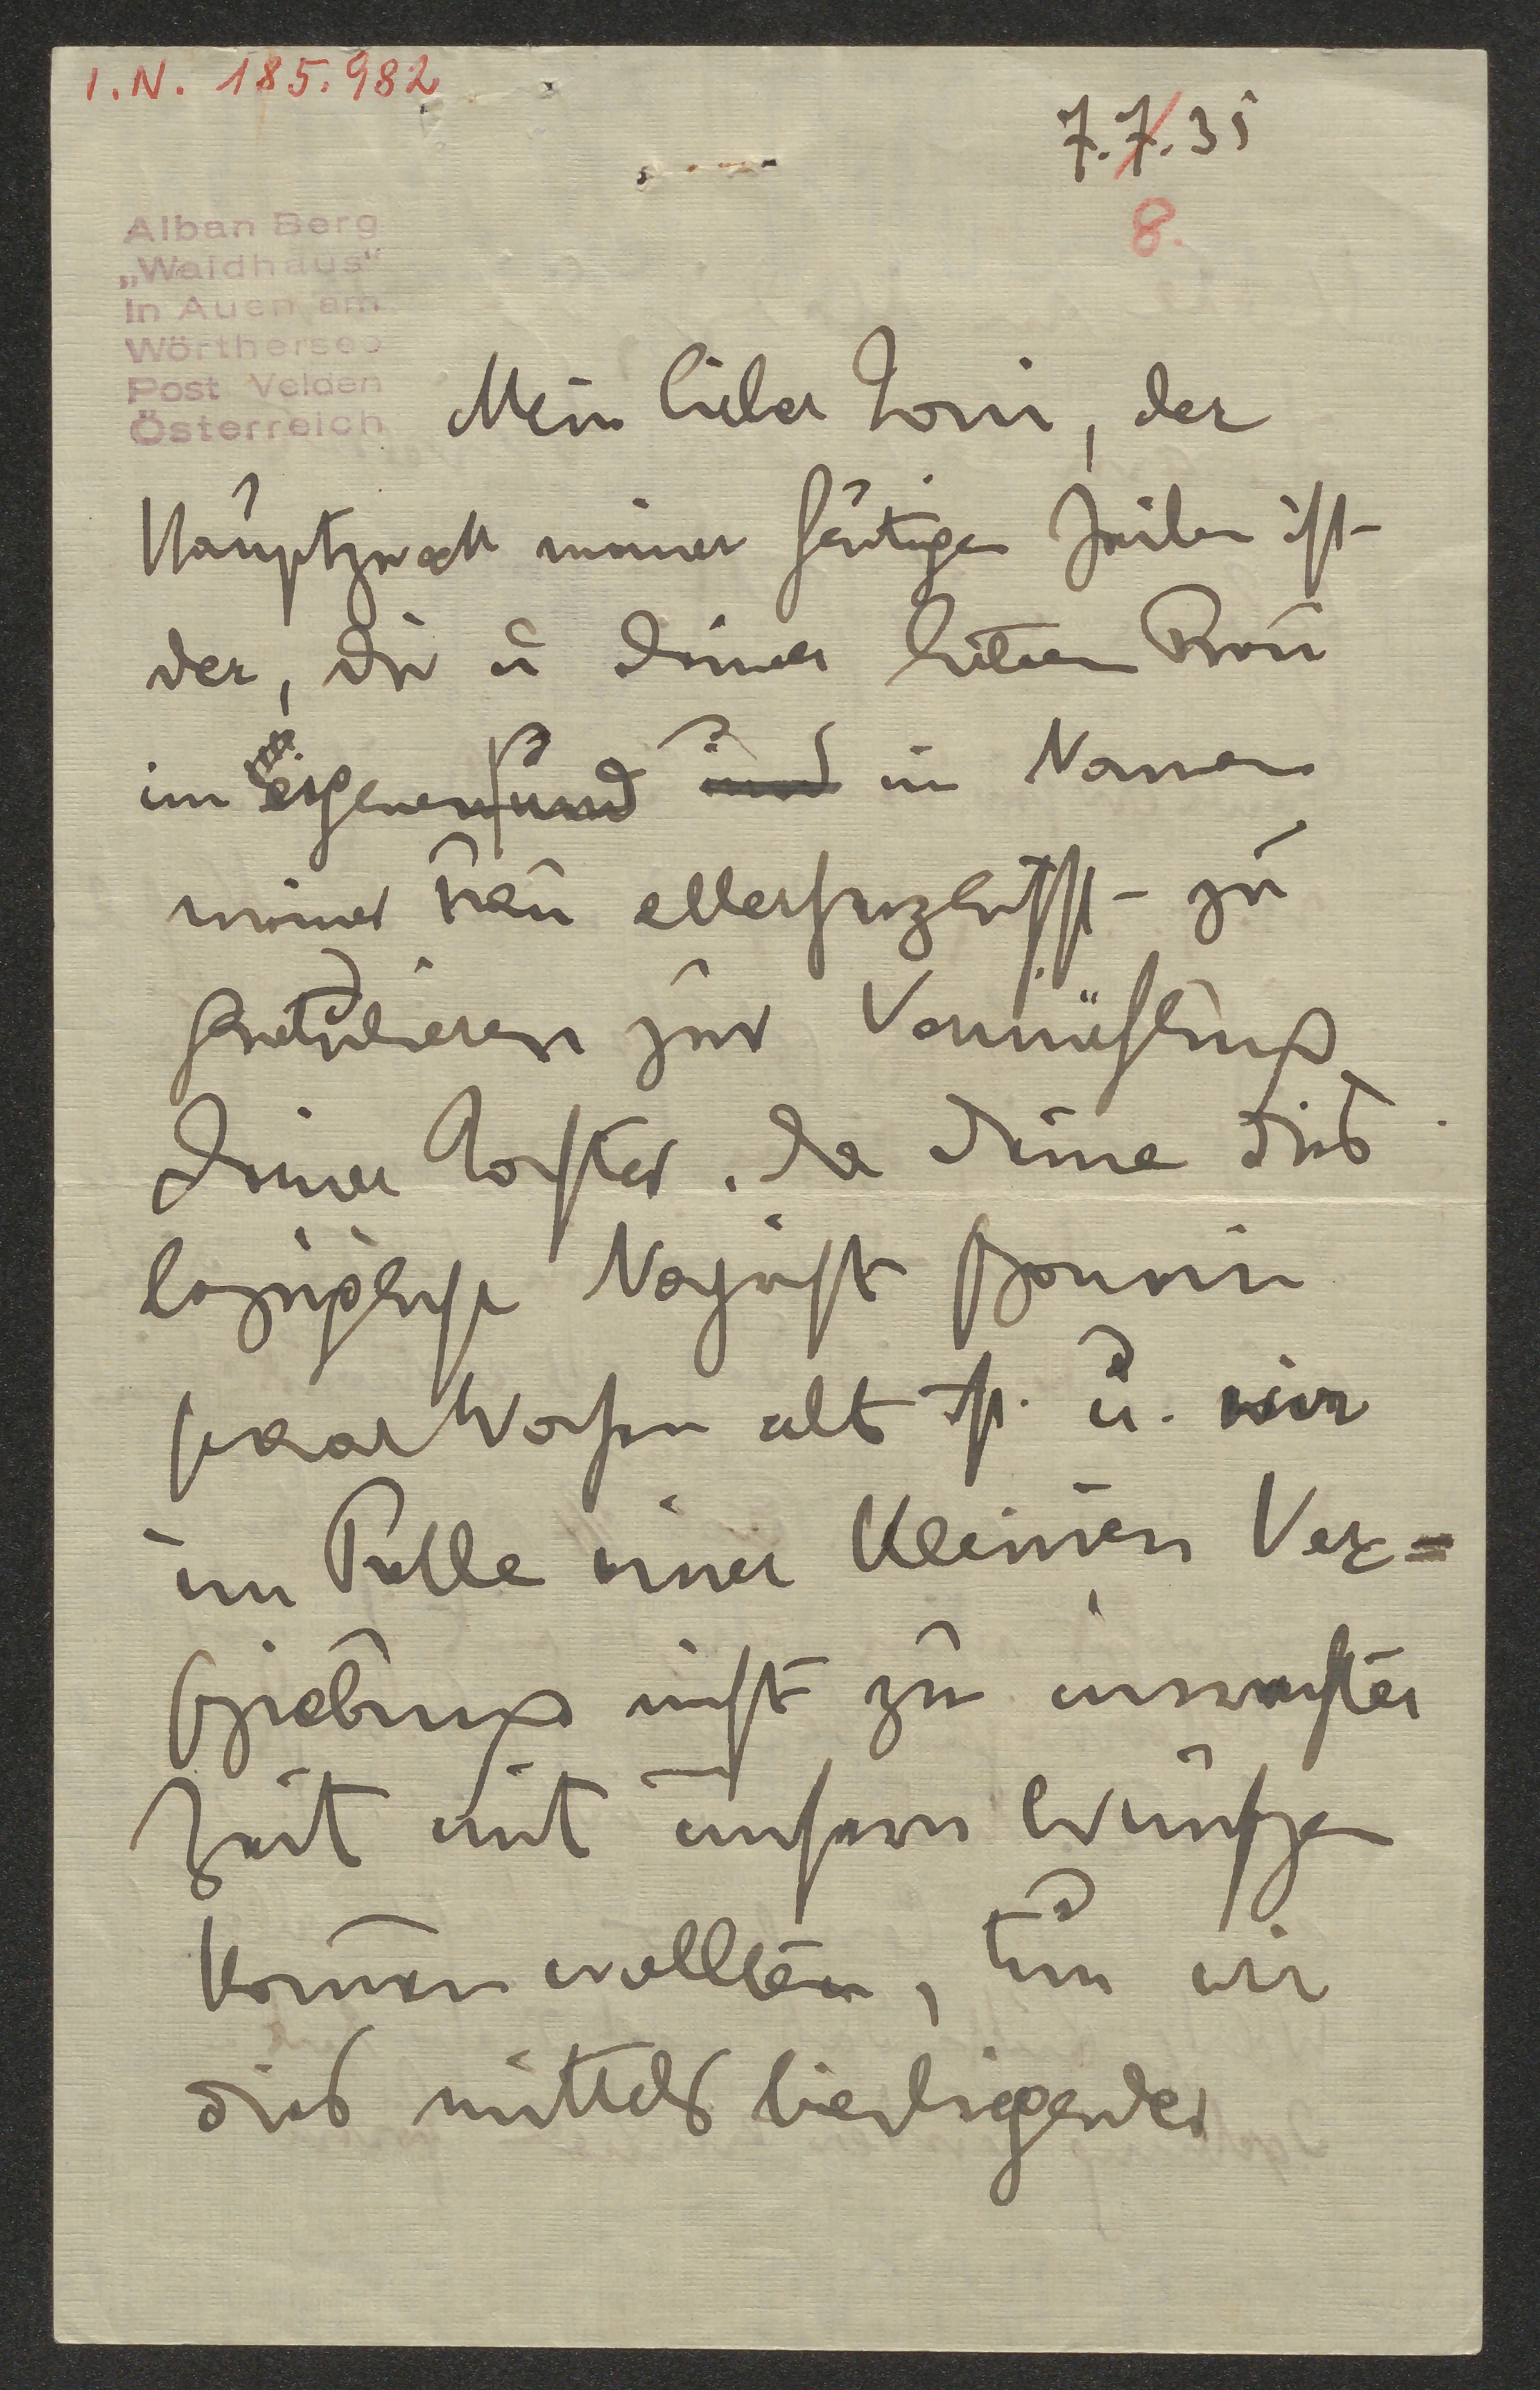 I.N. 185.982
7.7.35
8.
Alban Berg
„Waldhaus“
In Auen am
Wörthersee
Post Velden
Österreich
Mein lieber Toni, der
Hauptzweck meiner heutigen Zeilen ist
der, Dir u Deiner lieben Frau
im eigenen und und im Namen
meiner Frau allerherzlichst zu
gratulieren zur Vermählung
Deiner Tochter. Da Deine dies
bezügliche Nachricht schon ein
paar Wochen alt ist u. wir
im Falle einer kleinen Ver=
schiebung nicht zu unrechter
Zeit mit unseren Wünschen
kommen wollten, tun wir
dies mittels beiliegender